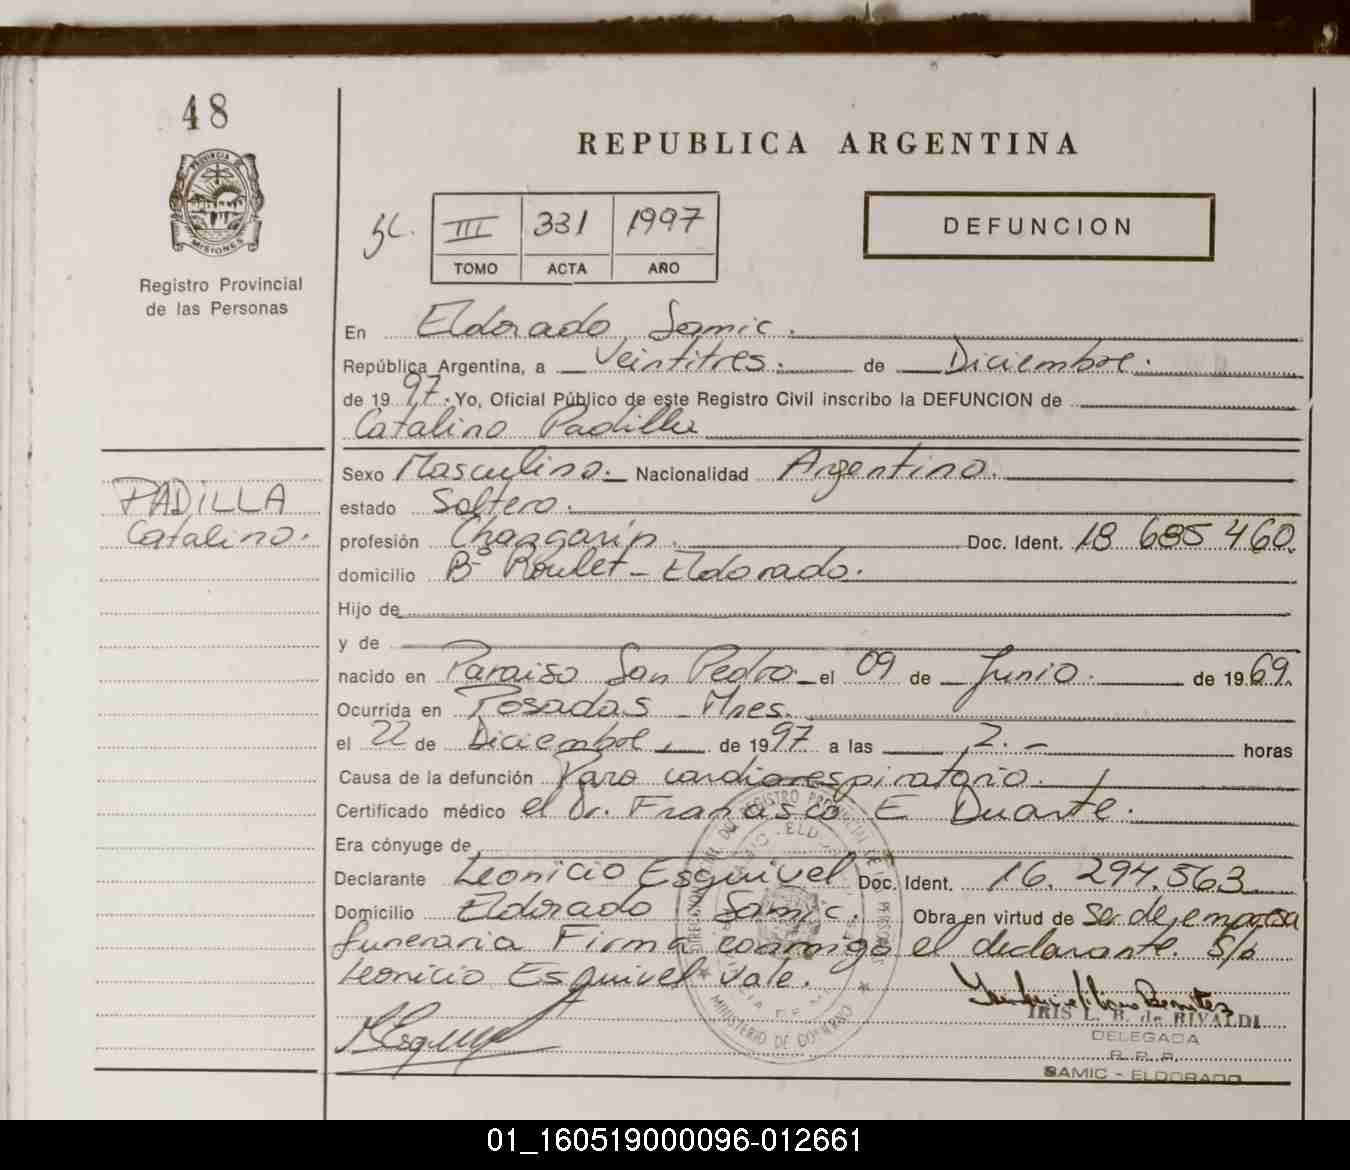 48
REPUBLICA ARGENTINA
PROVINCIA DE
MISIONES
Registro Provincial
de las Personas
III 331 1997
TOMO ACTA AÑO
DEFUNCION
En Eldorado Samic.
República Argentina, a Veintitres. de Diciembre.
de 1997. Yo, Oficial Público de este Registro Civil inscribo la DEFUNCION de
Catalino Padilla
PADILLA
Catalino.
Sexo Masculino. Nacionalidad Argentino.
estado Soltero.
profesión Chaagarin. Doc. Ident. 18 685 460.
domicilio Bº Roulet - Eldorado.
Hijo de
y de
nacido en Paraiso San Pedro el 09 de Junio. de 1969.
Ocurrida en Posadas - Mnes.
el 22 de Diciembre, de 1997 a las 2.- horas
Causa de la defunción Paro cardiorespiratorio.
Certificado médico el Dr. Francisco E Duarte.
Era cónyuge de
Declarante Leonicio Esquivel Doc. Ident. 16. 294.563
Domicilio Eldorado Samic. Obra en virtud de ser de empresa
funeraria Firma conmigo el declarante. S/b
Leonicio Esquivel Vale.
IRIS L. B. de RIVALDI
DELEGADA
R. P. P.
SAMIC - ELDORADO
MINISTERIO DE GOBIERNO
01_160519000096-012661